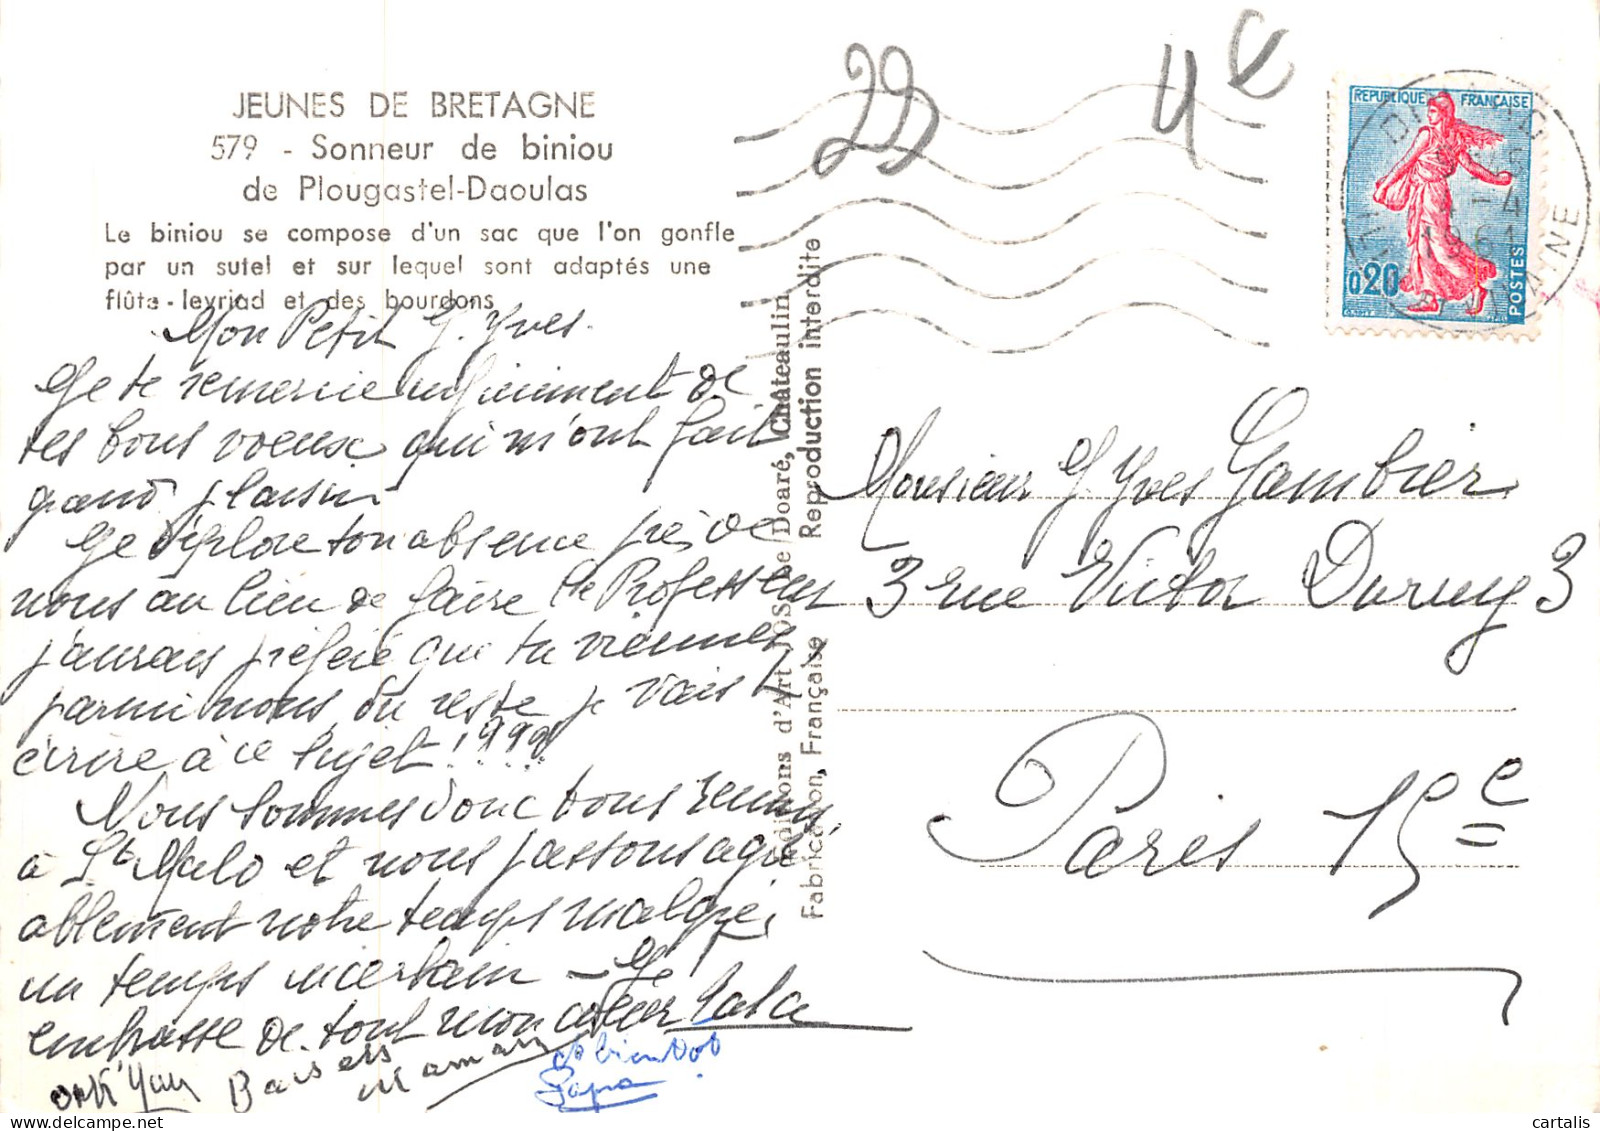 JEUNES DE BRETAGNE
579 - Sonneur de biniou
de Plougastel-Daoulas
Le biniou se compose d'un sac que l'on gonfle
par un sutel et sur lequel sont adaptés une
flûte - levriad et des bourdons
Mon Petit J. Yves.
Je te remercie infiniment de
tes bons voeux qui m'ont fait
grand plaisir
Je déplore ton absence près de
nous au lieu de faire le Professeur
j'aurais préféré que tu viennes
parmi nous du reste je vais
écrire à ce sujet !
Nous sommes donc tous réunis
à St Malo et nous passons agré
ablement notre temps malgré
un temps incertain - Je
embrasse de tout mon coeur
Baisers Maman
à bientôt
Papa
Editions d'Art JOS Le Doaré, Châteaulin
Fabrication Française Reproduction interdite
29
4 €
REPUBLIQUE FRANÇAISE
0,20
POSTES
1961
Monsieur J. Yves Gambier
3 rue Victor Duruy 3
Paris 15e
cartalis